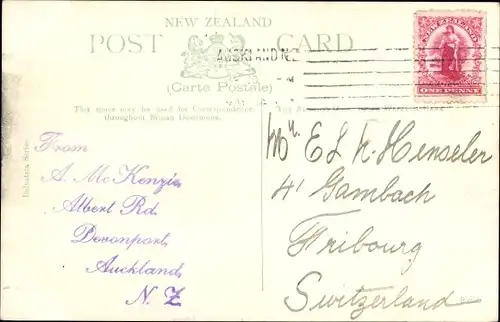 NEW ZEALAND
POST CARD
AUCKLAND N.Z.
(Carte Postale)
This space may be used for Correspondence
throughout British Dominions.
Industria Series
From
A. McKenzie
Albert Rd.
Devonport,
Auckland,
N. Z
NEW ZEALAND
ONE PENNY
E L Henseler
41 Gambach
Fribourg
Switzerland